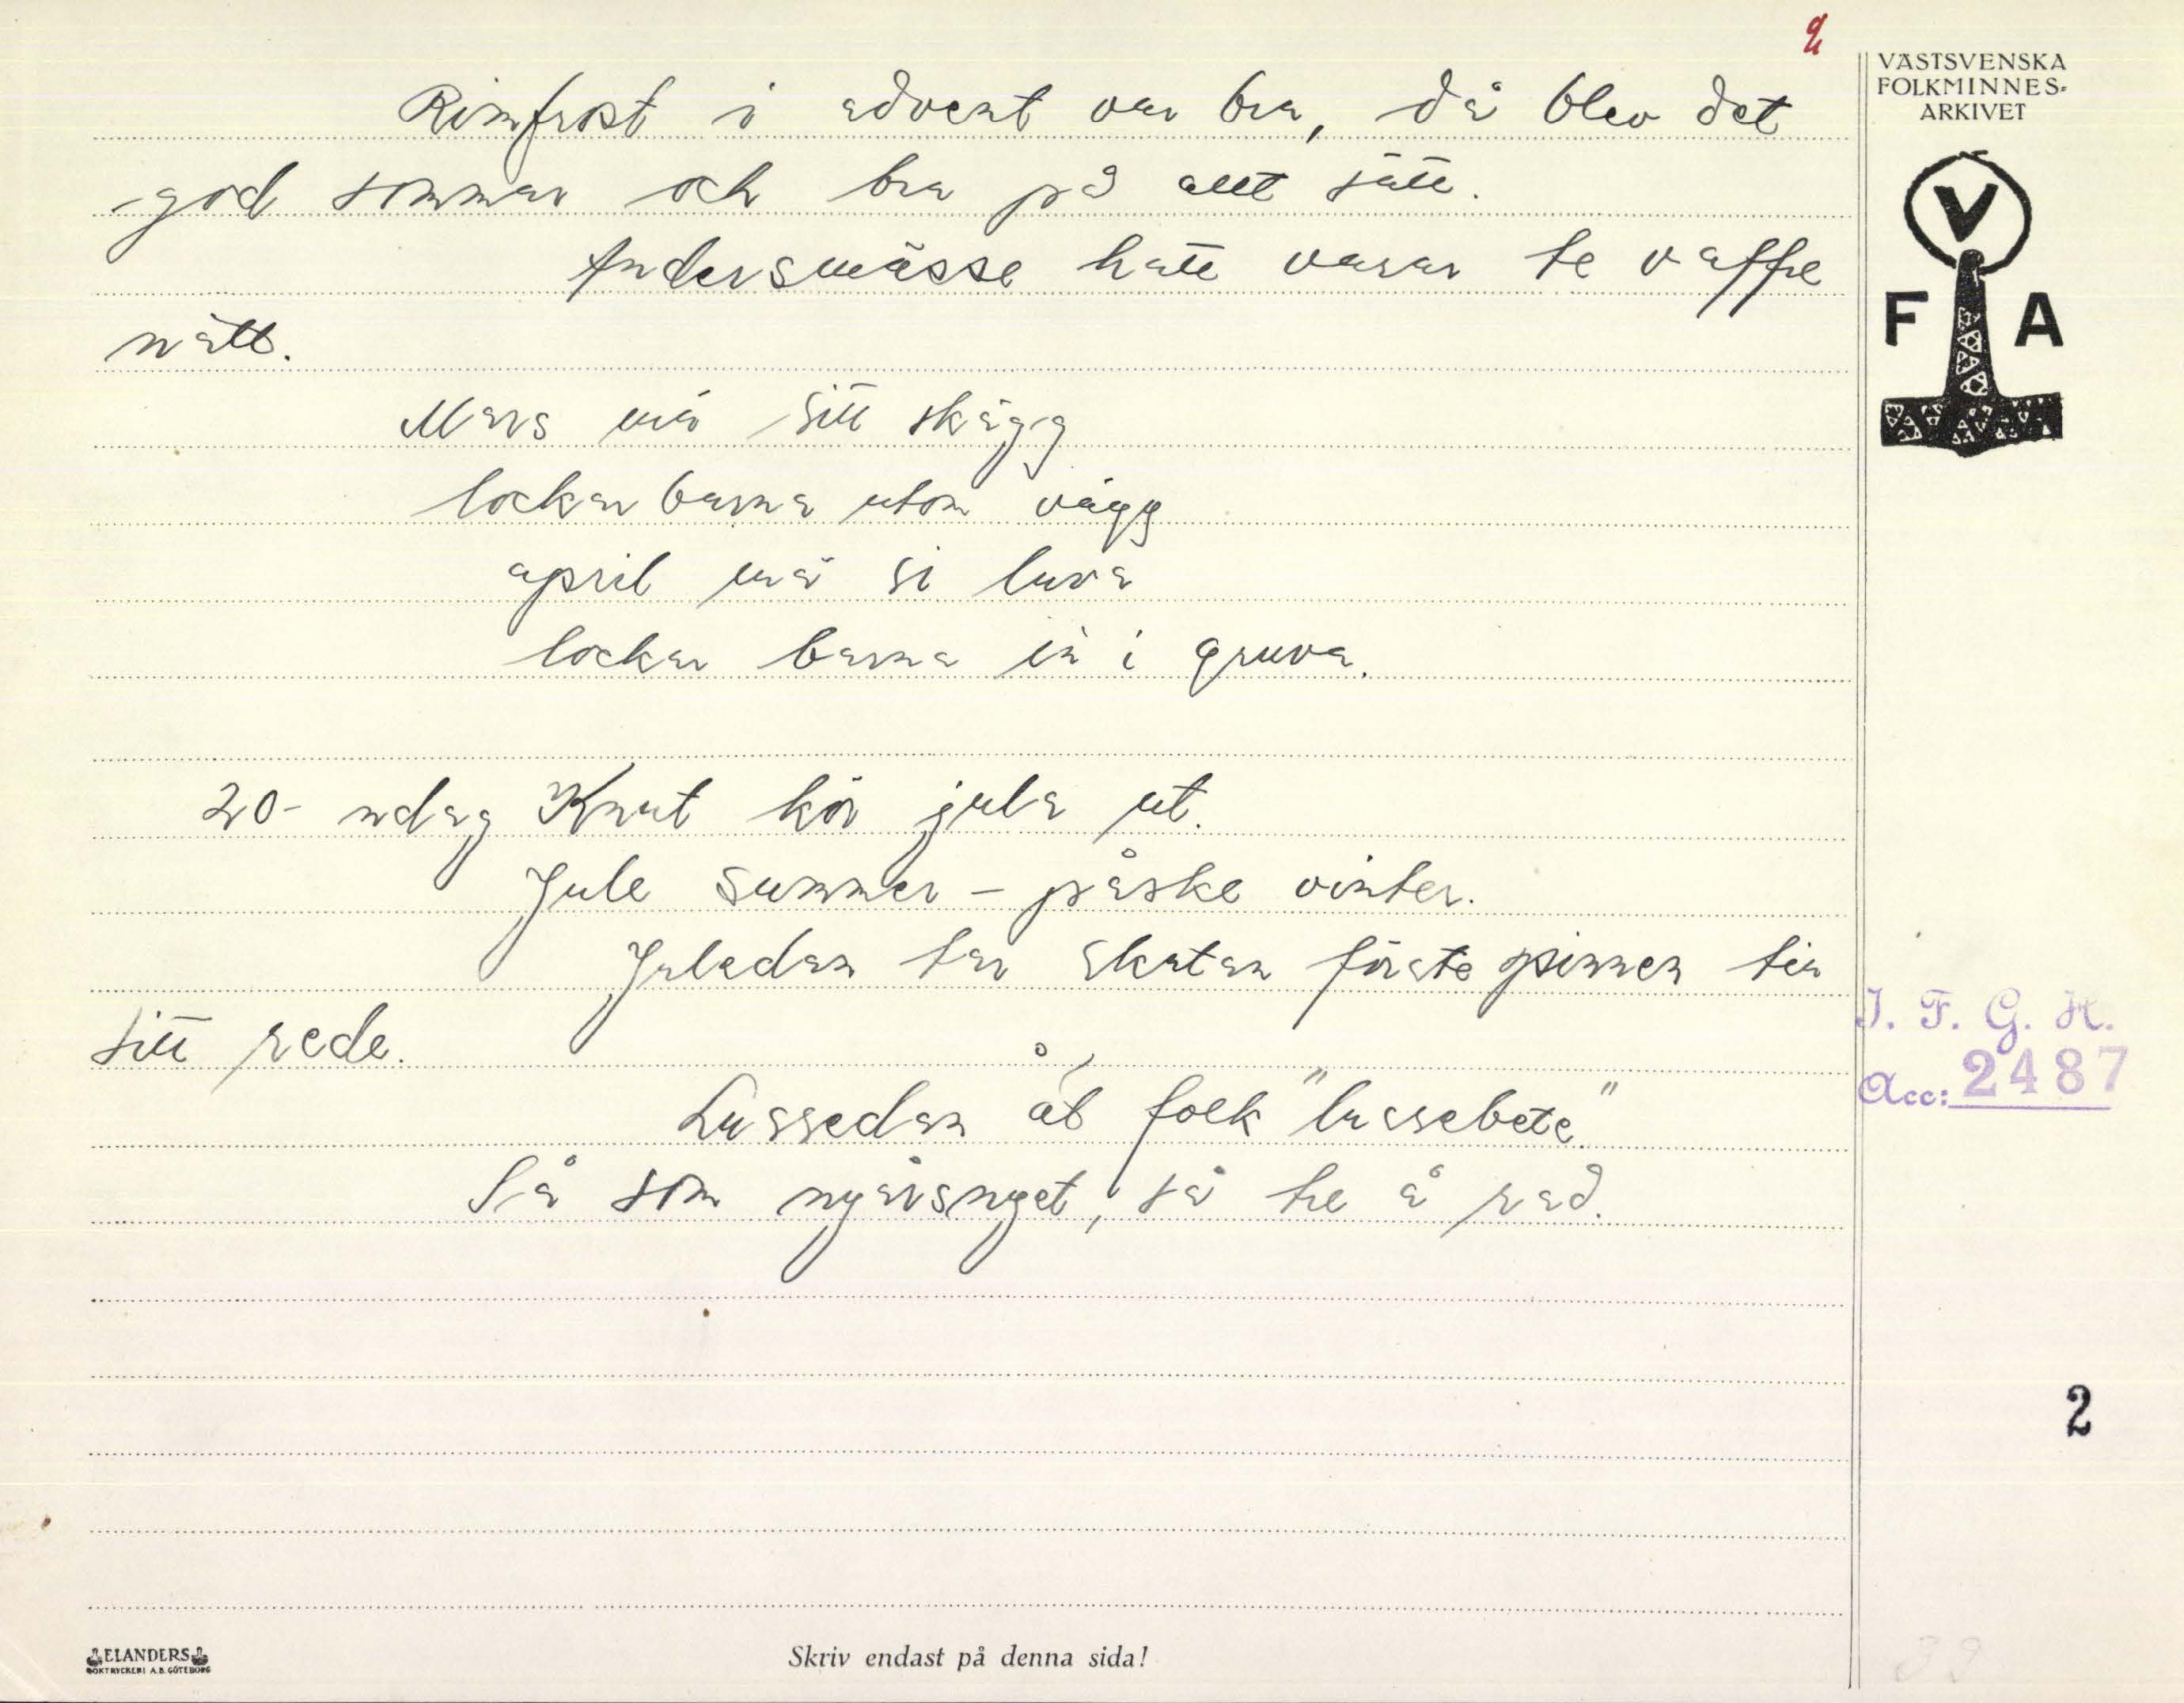 2
VÄSTSVENSKA
FOLKMINNES-
ARKIVET
V
F A
Rimfrost i advent var bra, då blev det
god sommar och bra på allt sätt.
Andersmässe natt varar te vaffre
natt.
Mars mä sitt skägg
lockar barna utom vägg
april mä si luva
lockar barna in i gruva.
20-ndag Knut kör jula ut.
Jule summer - påske vinter.
Juledan tar skatan förste pinnen till
sitt rede.
Lussedan åt folk "lussebete"
Så som nyårsnyet, så tre å rad.
I. F. G. H.
Acc: 2487
2
ELANDERS
BOKTRYCKERI A.B. GÖTEBORG
Skriv endast på denna sida!
39